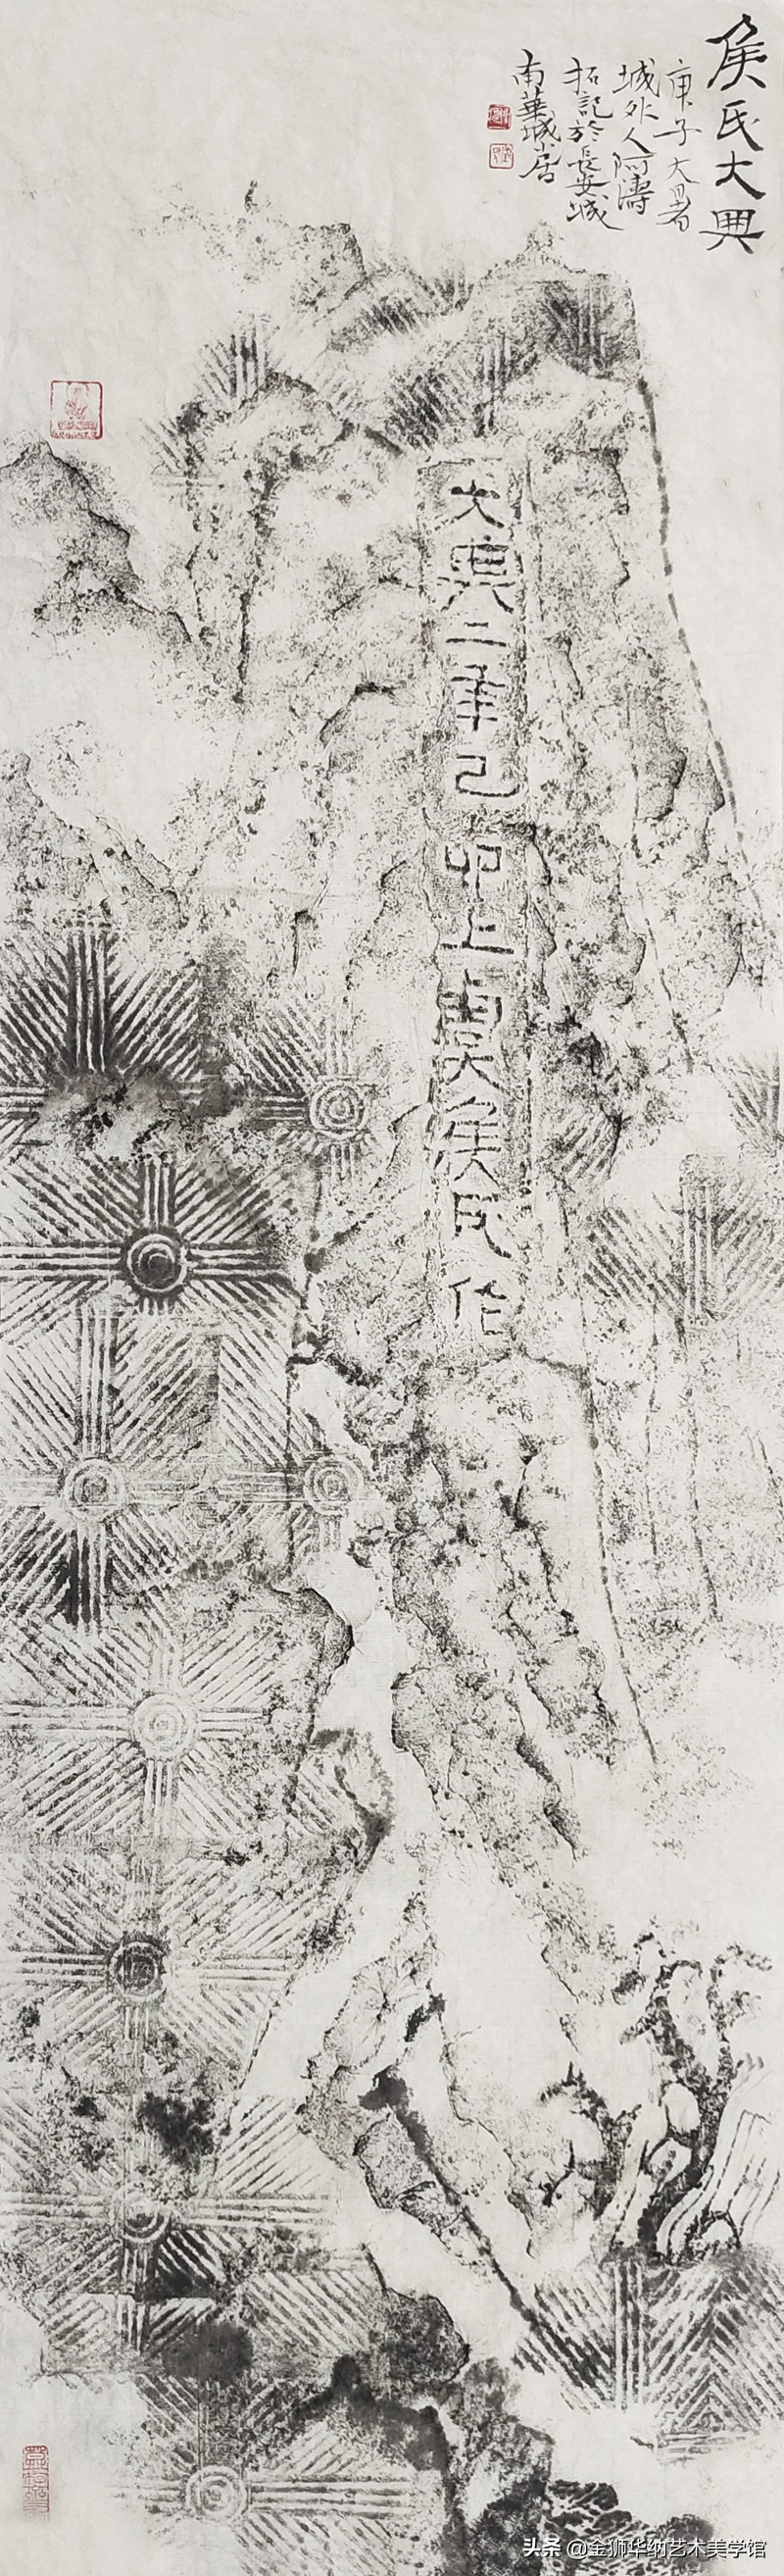 侯氏大興
庚子大暑
城外人阿濤
拓記於長安城
南華城小居
大興二年己卯上虞侯氏作
头条 @金狮华纳艺术美学馆